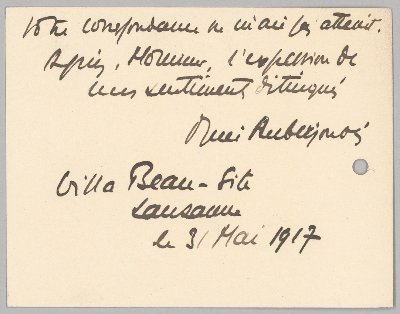 votre correspondance ne m'ait pas atteint.
Agréez, Monsieur, l'expression de
mes sentiments distingués
René Auberjonois
Villa Beau-Site
Lausanne
le 31 Mai 1917